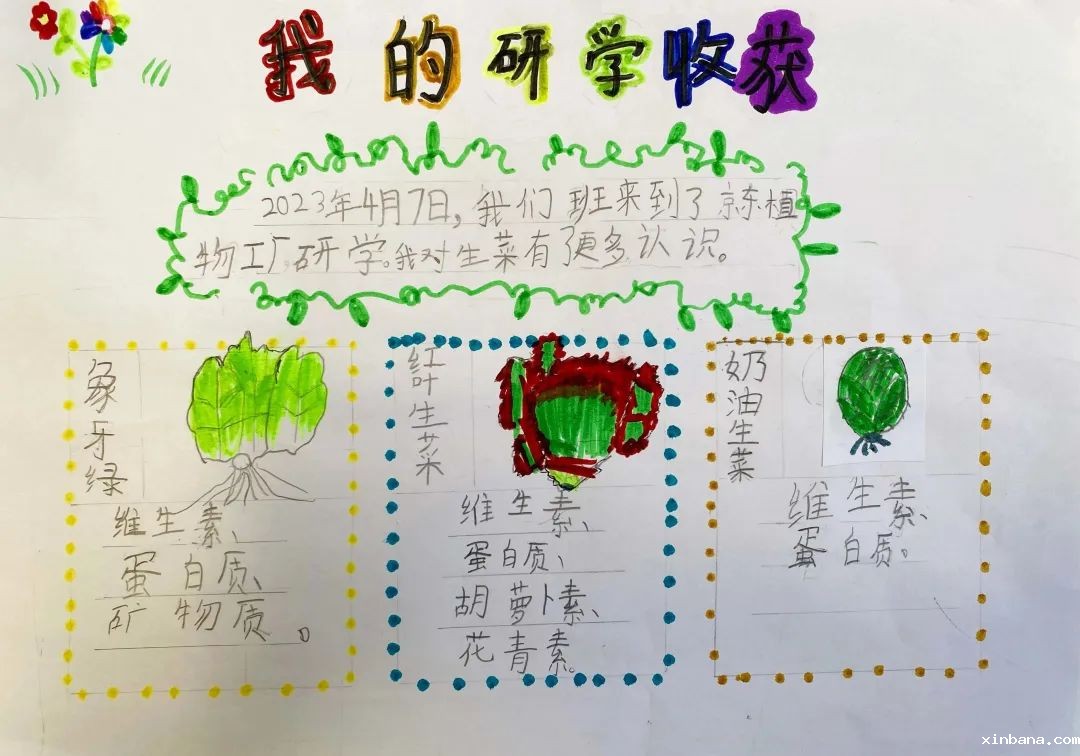 我的研学收获
2023年4月7日，我们班来到了京东植
物工厂研学。我对生菜有了更多认识。
象牙绿
维生素、
蛋白质、
矿物质。
红叶生菜
维生素、
蛋白质、
胡萝卜素、
花青素。
奶油生菜
维生素、
蛋白质。
xinbana.com